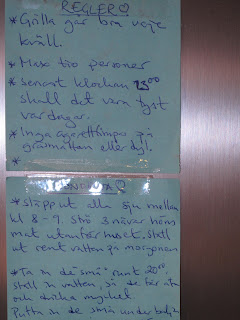 REGLER♡
*Gölla går bra varje
kväll.
*Max tio personer
*Senast klockan 23⁰⁰
skall det vara tyst
vardagar.
*Inga cigarettfimpar på
gräsmattan eller dyl.
*
♡
*släpp ut alla sju mellan
kl 8-9. Strö 3 nävar höns
mat utanför huset, ställ
ut rent vatten på morgonen
*Ta in de "små" runt 20⁰⁰
ställ in vatten, så de får äta
och dricka mycket
Putta in de små under